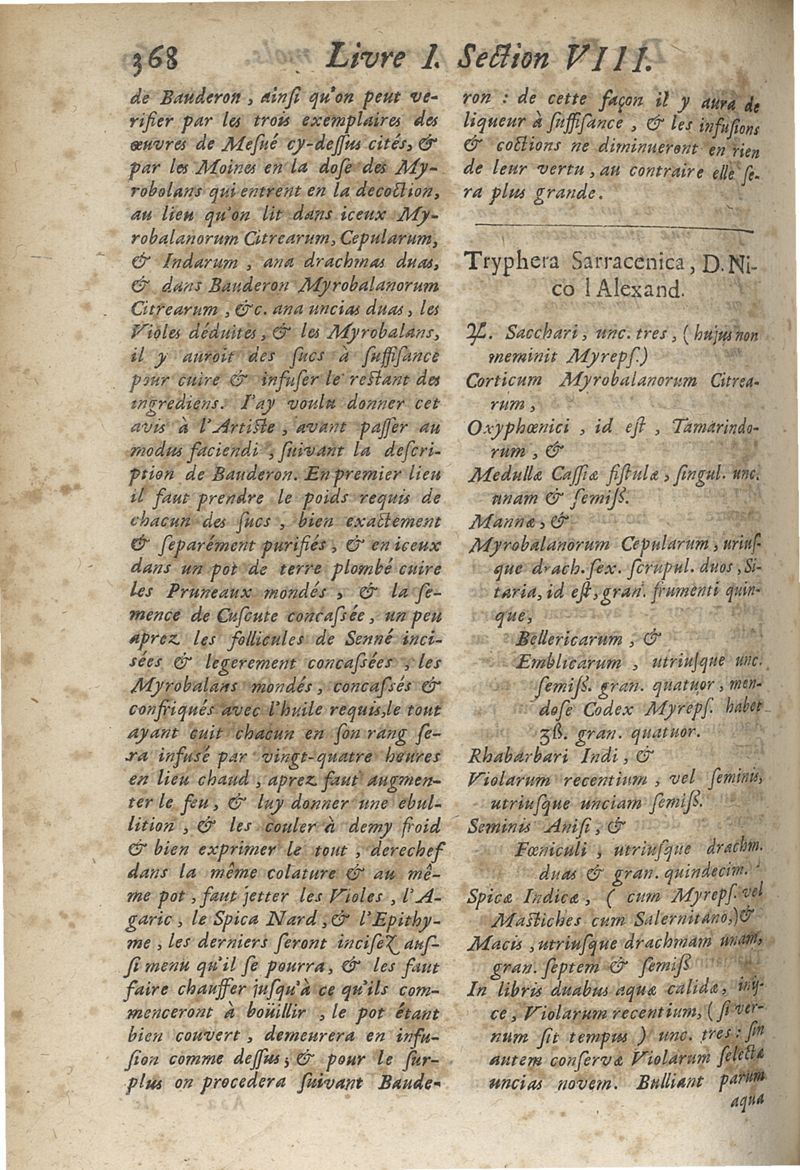 368 Livre I. Section VIII.
de Bauderon, ainſi qu'on peut ve-
rifier par les trois exemplaires des
œuvres de Meſué cy-deſſus cités, &
par les Moines en la doſe des My-
robolans qui entrent en la decoction,
au lieu qu'on lit dans iceux My-
robalanorum Citrearum, Cepularum,
& Indarum, ana drachmas duas,
& dans Bauderon Myrobalanorum
Citrearum, &c. ana uncias duas, les
Violes déduites, & les Myrobalans,
il y auroit des ſucs à ſuffiſance
pour cuire & infuſer le reſtant des
ingrediens. I'ay voulu donner cet
avis à l'Artiſte, avant paſſer au
modus faciendi, ſuivant la deſcri-
ption de Bauderon. En premier lieu
il faut prendre le poids requis de
chacun des ſucs, bien exactement
& ſeparément purifiés, & en iceux
dans un pot de terre plombé cuire
les Pruneaux mondés, & la ſe-
mence de Cuſcute concaſsée, un peu
aprez les follicules de Senné inci-
sées & legerement concaſsées, les
Myrobalans mondés, concaſsés &
confriqués avec l'huile requis, le tout
ayant cuit chacun en ſon rang ſe-
ra infusé par vingt-quatre heures
en lieu chaud, aprez faut augmen-
ter le feu, & luy donner une ebul-
lition, & les couler à demy froid
& bien exprimer le tout, derechef
dans la même colature & au mê-
me pot, faut jetter les Violes, l'A-
garic, le Spica Nard, & l'Epithy-
me, les derniers ſeront inciſez auſ-
ſi menu qu'il ſe pourra, & les faut
faire chauffer juſqu'à ce qu'ils com-
menceront à boüillir, le pot étant
bien couvert, demeurera en infu-
ſion comme deſſus; & pour le ſur-
plus on procedera ſuivant Baude-
ron : de cette façon il y aura de
liqueur à ſuffiſance, & les infuſions
& coctions ne diminueront en rien
de leur vertu, au contraire elle ſe-
ra plus grande.
Tryphera Sarracenica, D. Ni-
co l Alexand.
℞. Sacchari, unc. tres, (hujus non
meminit Myrepſ.)
Corticum Myrobalanorum Citrea-
rum,
Oxyphœnici, id eſt, Tamarindo-
rum, &
Medullæ Caſſiæ fiſtulæ, ſingul. unc.
unam & ſemiſſ.
Mannæ, &
Myrobalanorum Cepularum, utriuſ-
que drach. ſex. ſcrupul. duos, Si-
taria, id eſt, gran. frumenti quin-
que,
Bellericarum, &
Emblicarum, utriuſque unc.
ſemiſſ. gran. quatuor, men-
doſe Codex Myrepſ. habet
ʒß. gran. quatuor.
Rhabarbari Indi, &
Violarum recentium, vel ſeminis,
utriuſque unciam ſemiſſ.
Seminis Aniſi, &
Fœniculi, utriuſque drachm.
duas & gran. quindecim.
Spicæ Indicæ, ( cum Myrepſ. vel
Maſtiches cum Salernitano,) &
Macis, utriuſque drachmam unam,
gran. ſeptem & ſemiſſ
In libris duabus aquæ calidæ, inij-
ce, Violarum recentium, ( ſi ver-
num ſit tempus ) unc. tres : ſin
autem conſervæ Violarum ſelectæ
uncias novem. Bulliant parum
aqua